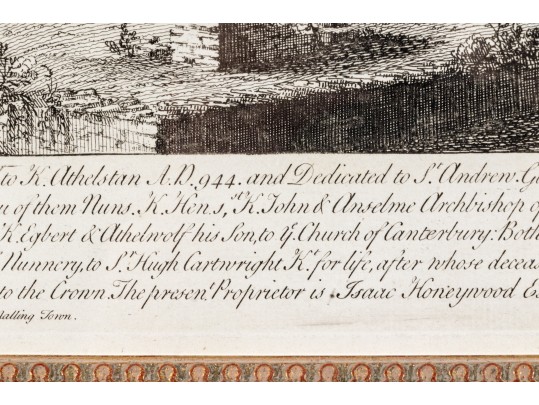 To K. Athelstan A.D. 944. and Dedicated to St. Andrew.
of them Nuns. K. Hen. 3d, K. John & Anselme Archbishop of
K. Egbert & Athelwolf his Son, to ye. Church of Canterbury. Both
Nunnery, to Sr. Hugh Cartwright Kt. for life, after whose deceas
to the Crown. The presen.t Proprietor is Isaac Honeywood Es
Malling Town.